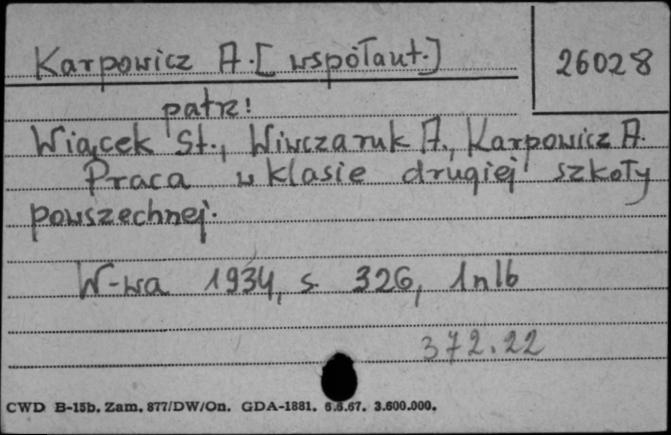 Karpowicz A. [współaut.]
26028
patrz!
Wiącek St., Wiwczaruk A., Karpowicz A.
Praca w klasie drugiej szkoły
powszechnej.
W-wa 1934, s. 326, 1nlb
372.22
CWD B-15b. Zam. 877/DW/On. GDA-1881. 6.6.67. 3.600.000.